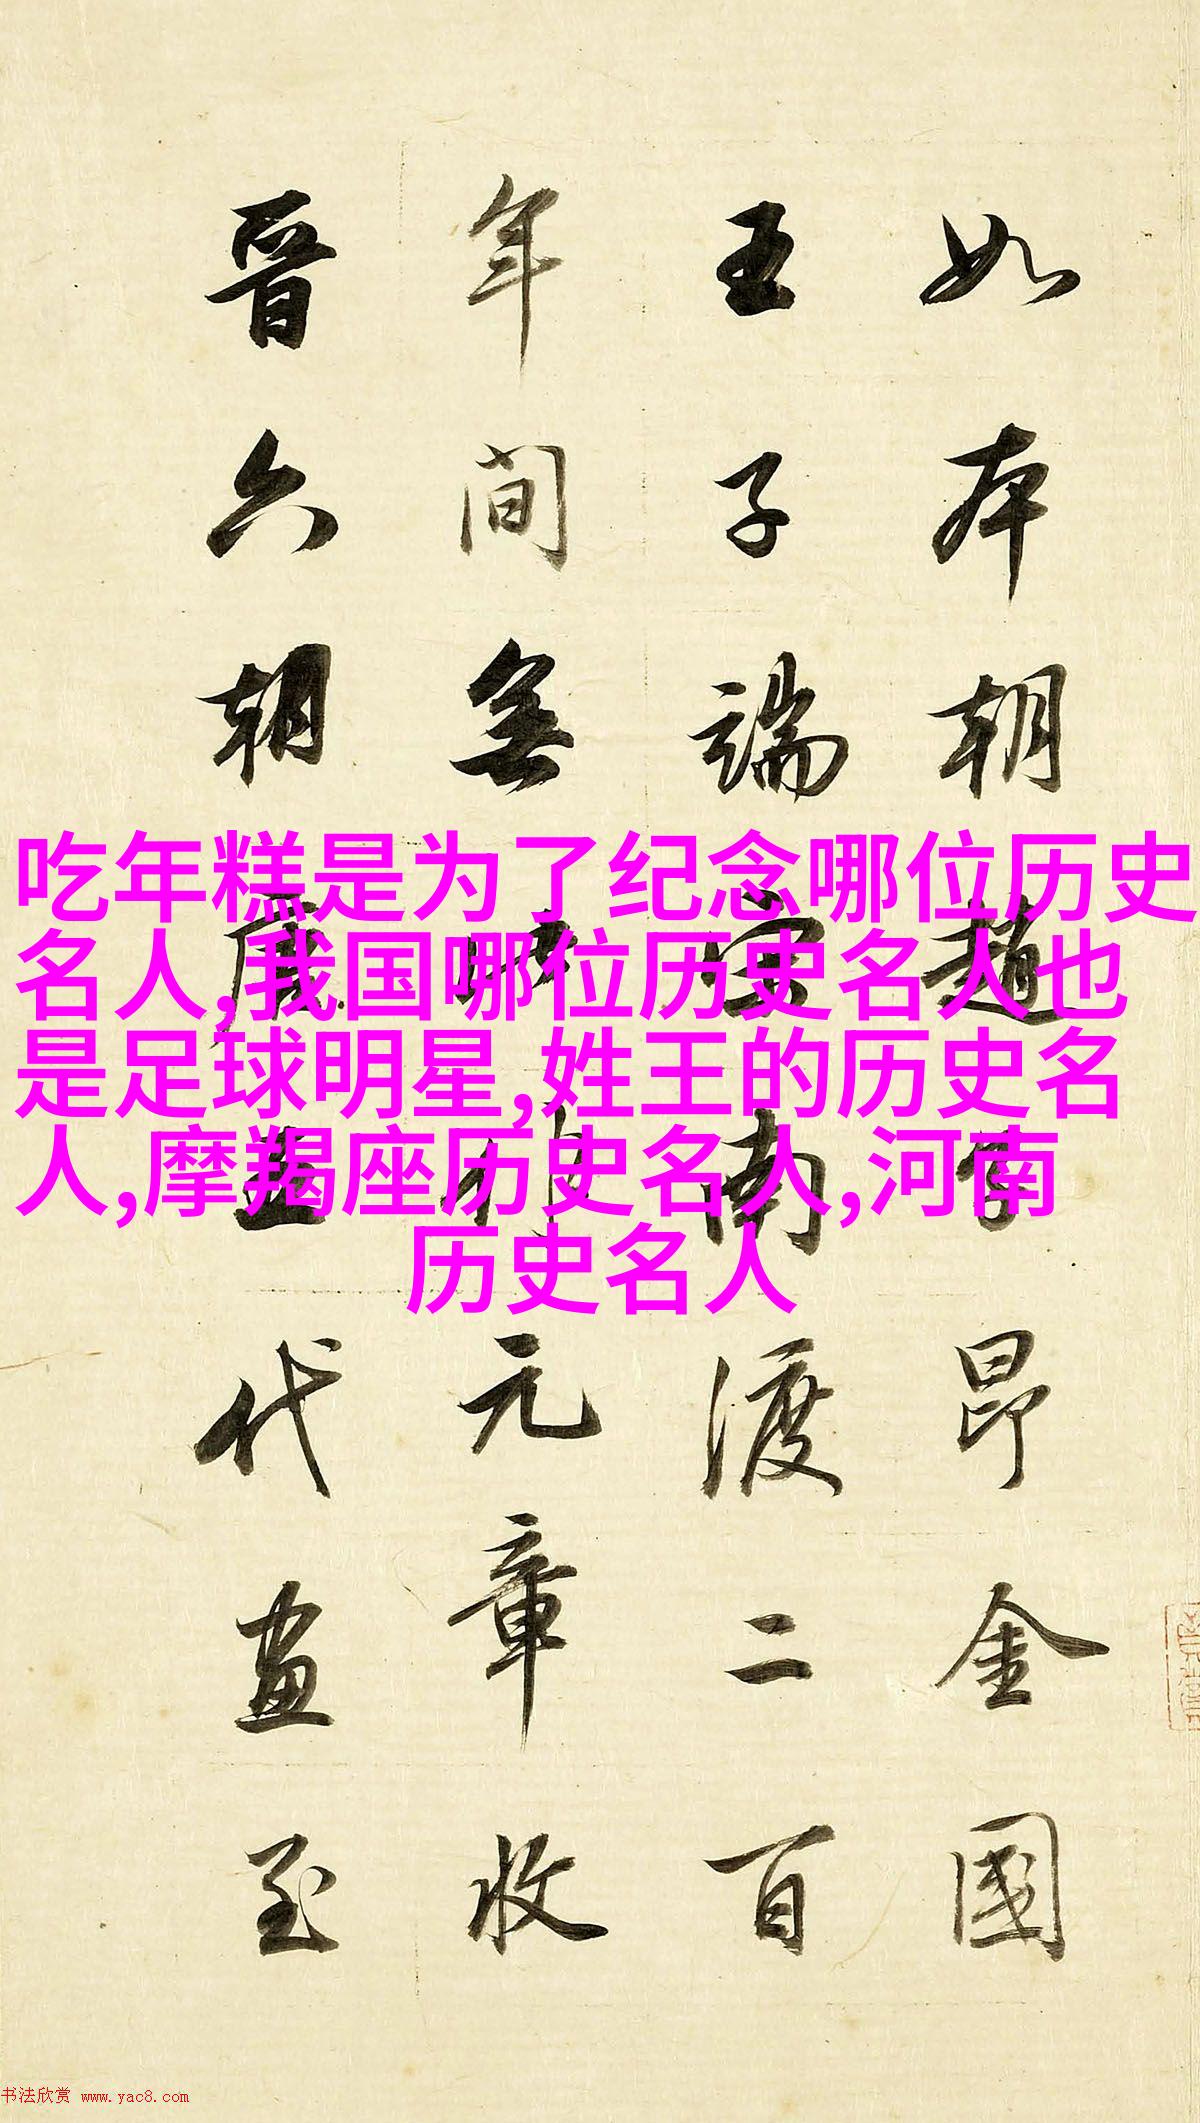 如本朝趙子昂金國
王子端宋南渡二百
年間無此作元章收
晉六朝唐五代畫至
吃年糕是为了纪念哪位历史
名人,我国哪位历史名人也
是足球明星,姓王的历史名
人,摩羯座历史名人,河南
历史名人
书法欣赏 www.yac8.com